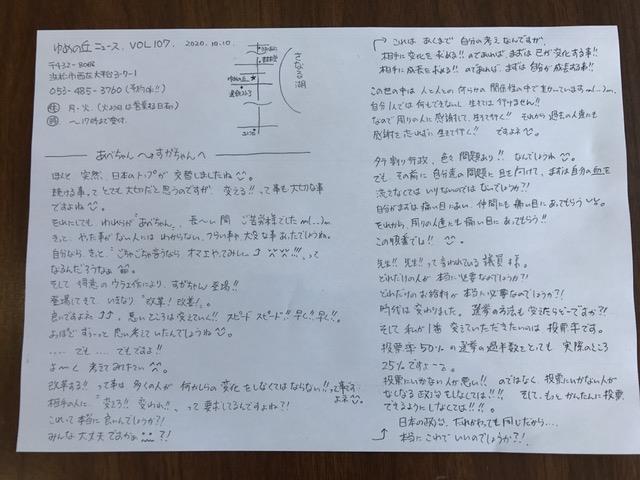 ゆめの丘ニュース. VOL107. 2020.10.10.
〒432-8068
浜松市西区大平台3-9-1
053-485-3760 (予約制!!)
月・火. (火よう日は営業な日も)
～17時まで受付.
さなる湖
ゆめの丘
あべちゃん へ→ すがちゃん へ
ほんと 突然、日本のトップが 交替しましたね
続ける事って とても大切だと思うのですが、変える!! って事も大切な事
ですよね
それにしても、われらが"あべちゃん"、長〜い間 ご苦労様でした m(..)m
きっと、やった事がない人には わからない、つらい事や大変な事あったでしょうね。
自分なら、きっと、"ごちゃごちゃ言うなら オマエやってみぃ… って
なるんだろうなぁ
そして 得意のウラ工作により、すがちゃん登場!!
登場してきて、いきなり"改革! 改革!"。
良いですよね、思いどころは変えていい!! スピード スピード!! 早く!! 早く!!。
よほど ずーっと 思い考えていたんでしょうね
.... でも .... でもですよ!!
よ〜く 考えてみて下さい
改革する!! って事は 多くの人が 何かしらの変化をしなくてはならない!! って事です
よネ
相手の人に、"変えろ!! 変われ!!"、って 要求してるんですよね?!
これって本当に良いんでしょうか?!
みんな大丈夫ですかぁ ?!
これは あくまで 自分の考えなんですが、
相手に変化を求める!! のであれば、まずは己が変化する事!!
相手に成長を求める!! のであれば、まずは自分が成長する事!!
この世の中は 人と人との 何らかの 関係性の中で 生かされています m(..)m
自分1人では 何もできないし 生きては 行けません!!
なので 周りの人に感謝して、生きて行く!! それから 過去の人達にも
感謝を忘れずに 生きて行く!! ですよね
タテ割り行政、色々問題あり!! なんでしょうね
でも その前に 自分達の問題に 目を向けて、まずは自分の血を
流さなくては いけないのでは ないでしょうか?!
自分がまずは痛い目にあい、仲間にも痛い目に あってもらう
それから、周りの人達にも 痛い目に あってもらう!!
この順番でしょ!!
先生!! 先生!! って 言われている 議員様。
どれだけの人が 本当に必要なんでしょうか?!
どれだけの お給料が 本当に必要なのでしょうか?!
時代は 変わりました。選挙の方法も 変えたらどーですか?!
そして 私が1番 変えていただきたいのは 投票率です。
投票率 50%の選挙の過半数をとっても 実際のところ
25%ですよ〜ね。
投票にいかない人が悪い!! のではなく、投票にいかない人が
なくなる政治をしなくては!! そして、もっと かんたんに投票
できるようにしなくては!!。
日本の政治、だれがやっても同じだから....
本当に これで いいのでしょうか?!